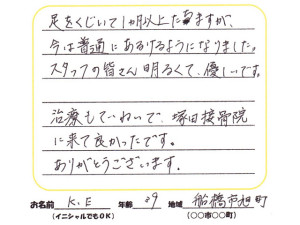 足をくじいて1ヵ月以上たちますが、
今は普通にあるけるようになりました。
スタッフの皆さん明るくて、優しいです。
治療もていねいで、塚田接骨院
に来て良かったです。
ありがとうございます。
お名前 K.E 年齢 39 地域 船橋市旭町
(イニシャルでもOK) (○○市○○町)